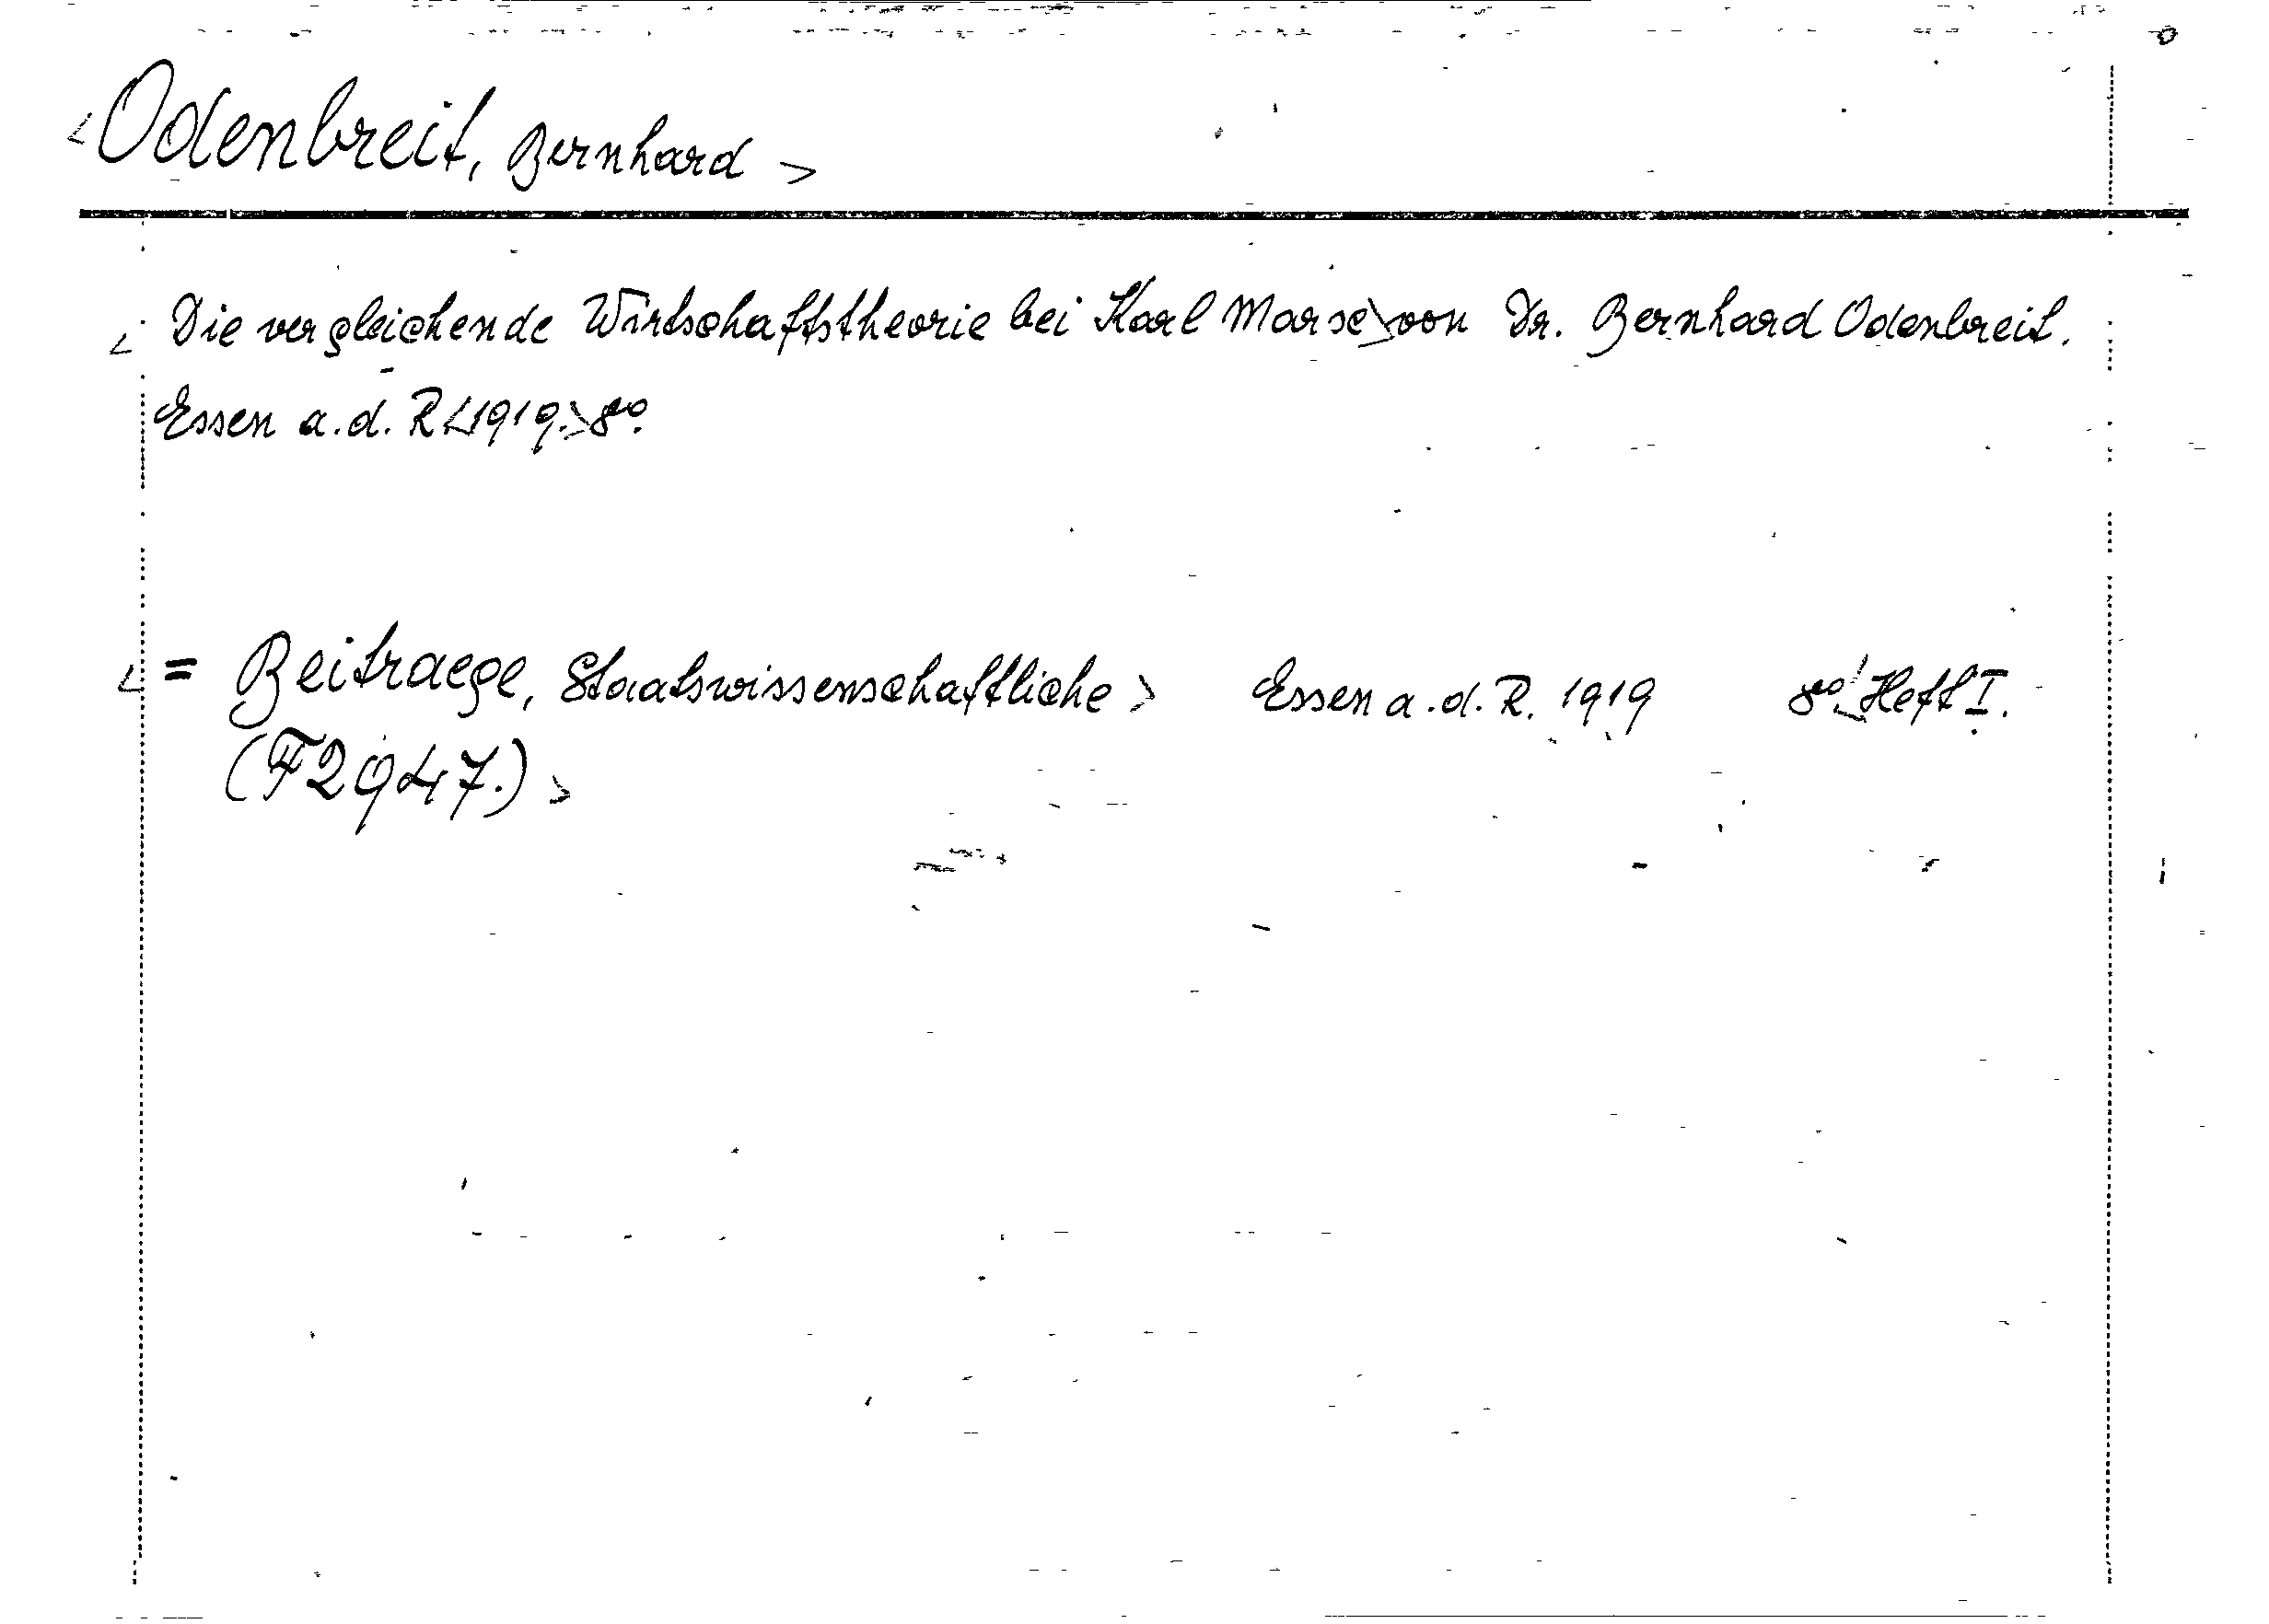 <Odenbreit, Bernhard>
<Die vergleichende Wirtschaftstheorie bei Karl Marx> von Dr. Bernhard Odenbreit.
Essen a.d. R <1919.> 8º.
<= Beitraege, Staatswissenschaftliche> Essen a.d.R. 1919 8º <Heft I.
(F 2947.)>